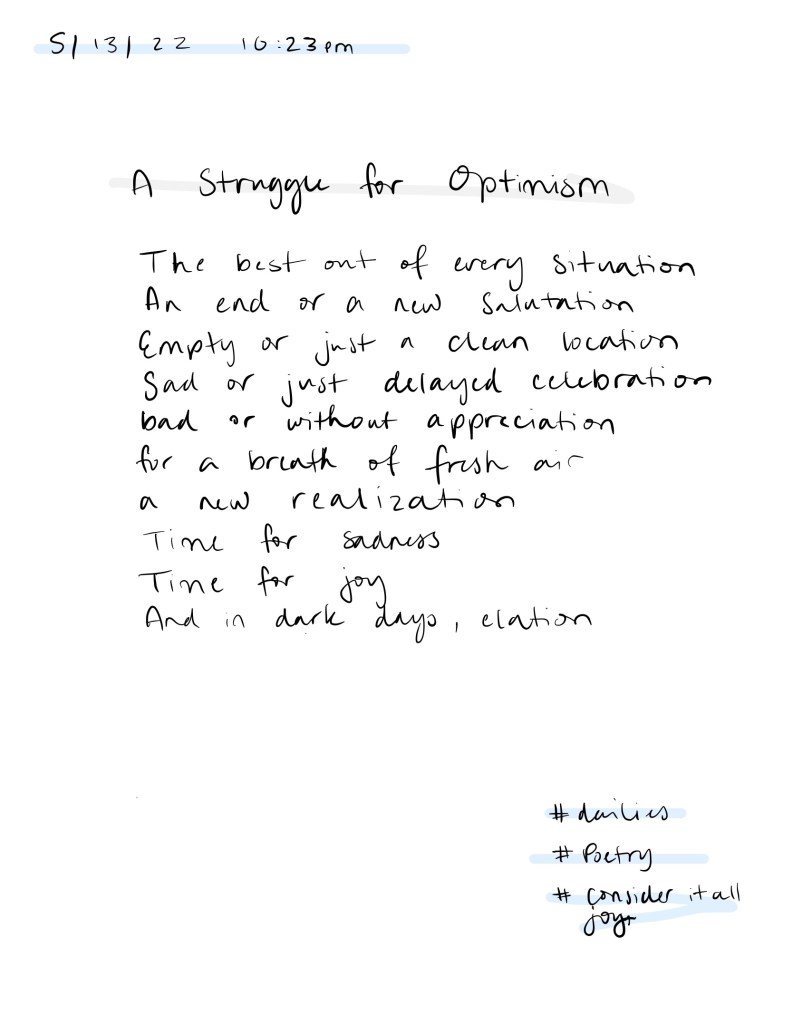 5/13/22 10:23pm
A Struggle for Optimism
The best out of every situation
An end or a new salutation
Empty or just a clean location
Sad or just delayed celebration
bad or without appreciation
for a breath of fresh air
a new realization
Time for sadness
Time for joy
And in dark days, elation
# dailies
# Poetry
# consider it all
joy